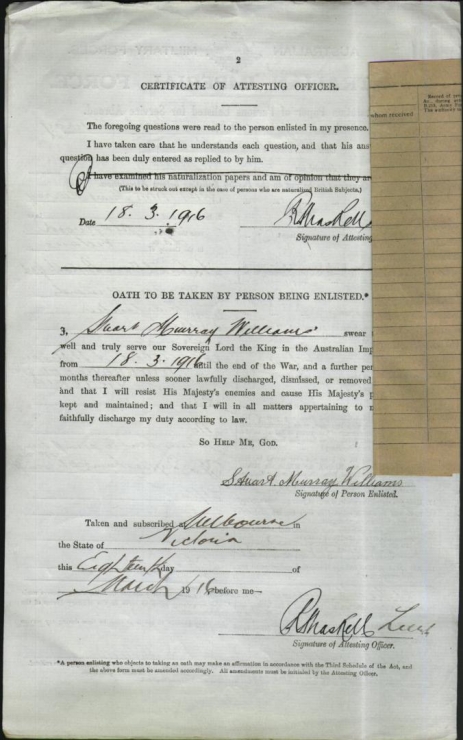 2
CERTIFICATE OF ATTESTING OFFICER.
The foregoing questions were read to the person enlisted in my presence.
I have taken care that he understands each question, and that his ans
question has been duly entered as replied to by him.
I have examined his naturalization papers and am of opinion that they are
(This to be struck out except in the case of persons who are naturalized British Subjects.)
Date 18. 3. 1916 R Maskell
Signature of Attesting
OATH TO BE TAKEN BY PERSON BEING ENLISTED.*
3, Stuart Murray Williams swear
well and truly serve our Sovereign Lord the King in the Australian Imp
from 18. 3. 1916 until the end of the War, and a further pe
months thereafter unless sooner lawfully discharged, dismissed, or removed
and that I will resist His Majesty's enemies and cause His Majesty's p
kept and maintained; and that I will in all matters appertaining to
faithfully discharge my duty according to law.
SO HELP ME, GOD.
Stuart Murray Williams
Signature of Person Enlisted.
Taken and subscribed at Melbourne in
the State of Victoria
this Eighteenth day of
March 1916 before me—
R Maskell Lieut
Signature of Attesting Officer.
*A person enlisting who objects to taking an oath may make an affirmation in accordance with the Third Schedule of the Act, and
the above form must be amended accordingly. All amendments must be initialed by the Attesting Officer.
whom received